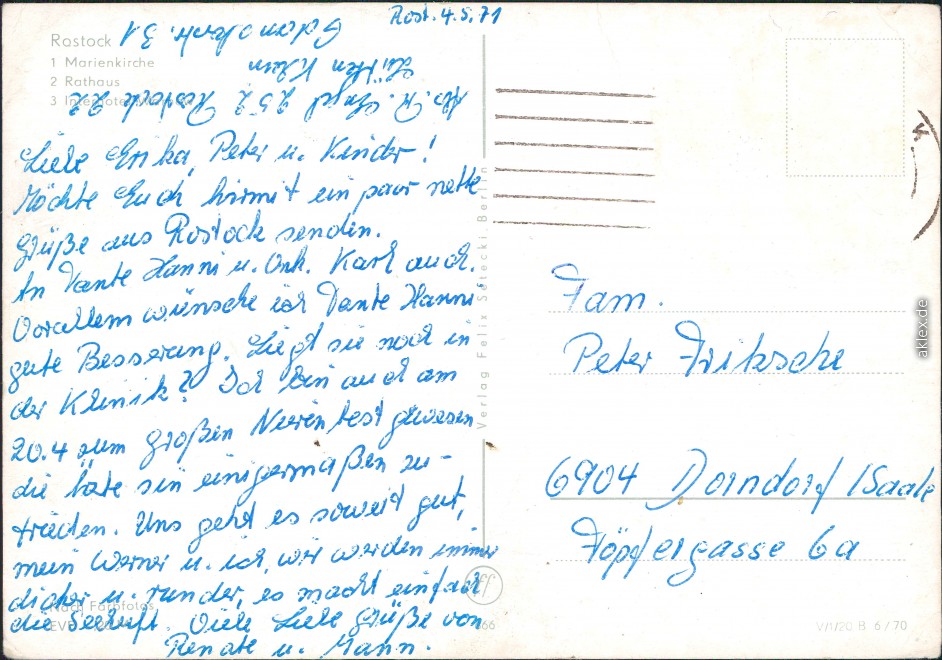 Rost. 4.5.71
Rostock
1 Marienkirche
2 Rathaus
3
252 Rostock 22
Lütten Klein
31
Liebe Erika, Peter u. Kinder!
Möchte Euch hirmit ein paar nette
Grüße aus Rostock senden.
An Tante Hanni u. Onk. Karl auch.
Vorallem wünsche ich Tante Hanni
gute Besserung. Liegt sie noch in
der Klinik? Ich bin auch am
20.4 zum großen Nieren test gewesen
die säte sin einigermaßen zu-
frieden. Uns geht es soweit gut,
mein Werner u. ich, wir werden immer
dicher u. runder, es macht einfach
die Seeluft. Viele Liebe Grüße von
Renate u. Mann.
Nach Farbfotos
Verlag Felix Setecki, Berlin
66
V/1/20 B 6/70
Fam.
Peter Fritzsche
6904 Dorndorf /Saale
Töpfergasse 6a
aklex.de